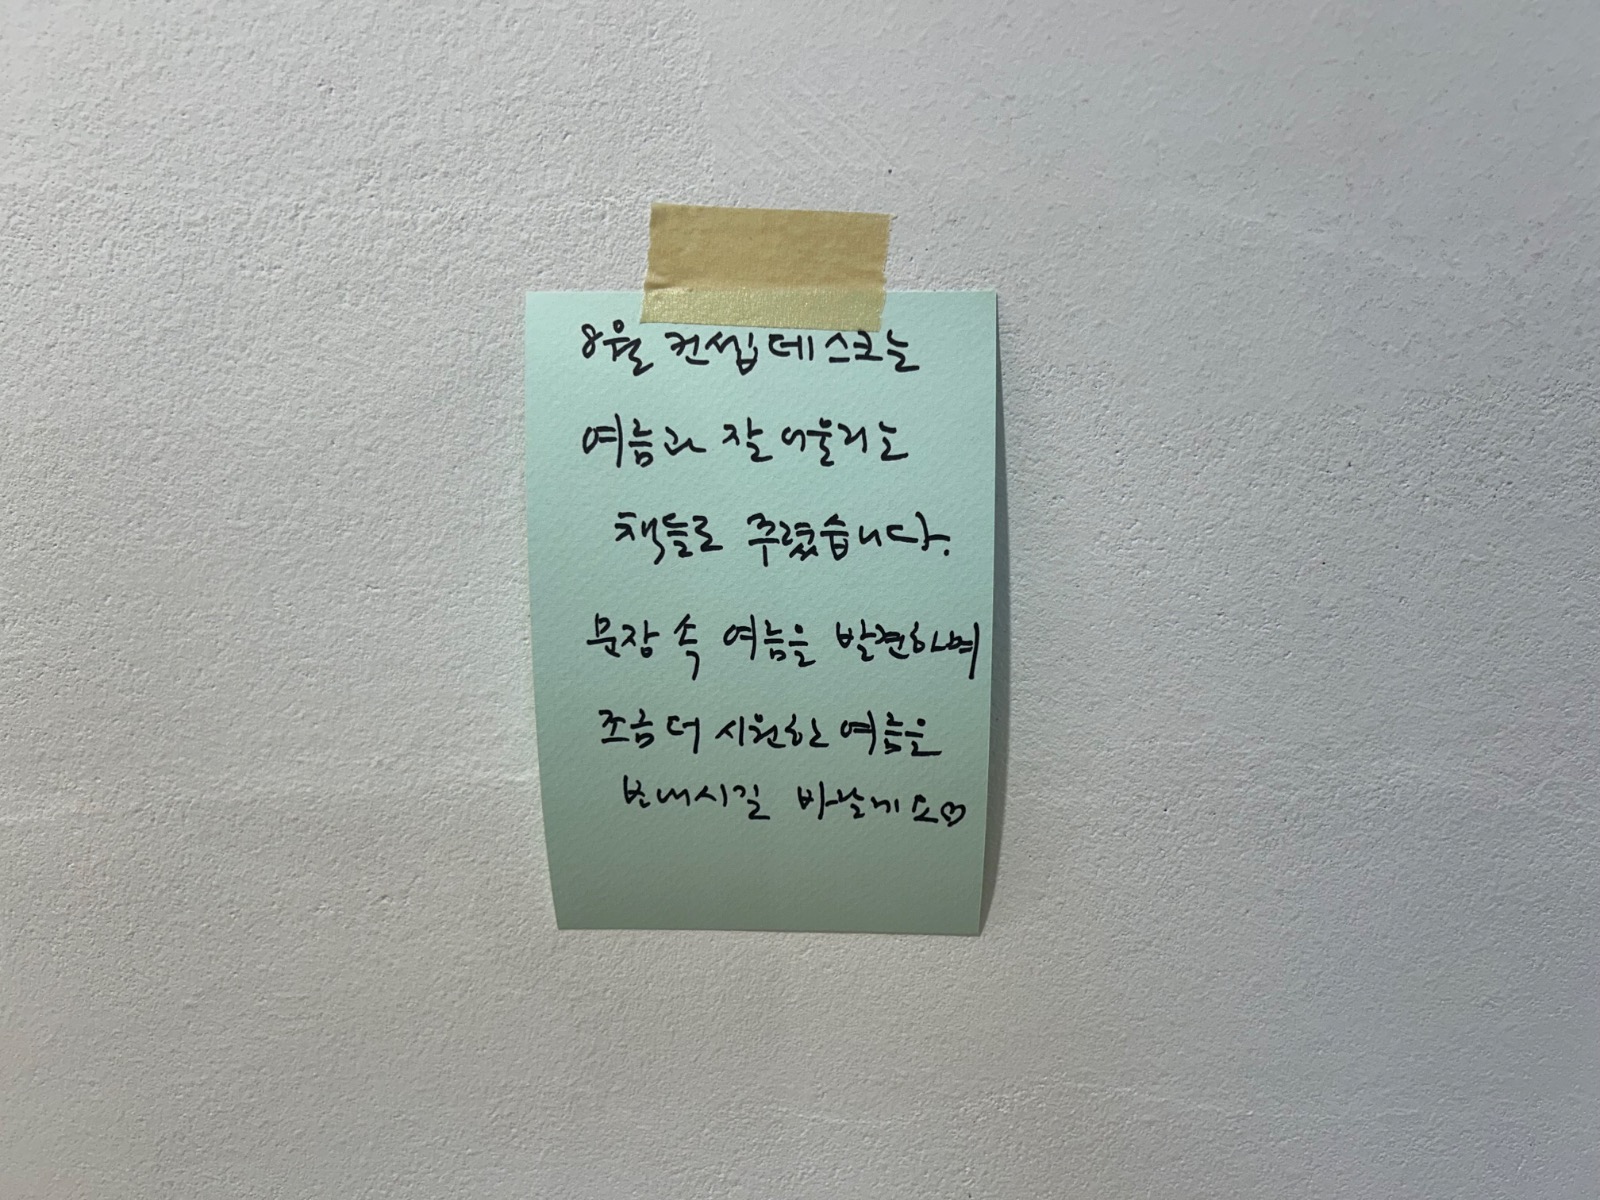 8월 컨셉데스크는
여름과 잘 어울리는
책들로 추렸습니다.
문장 속 여름을 발견하며
조금 더 시원한 여름을
보내시길 바랄게요♡